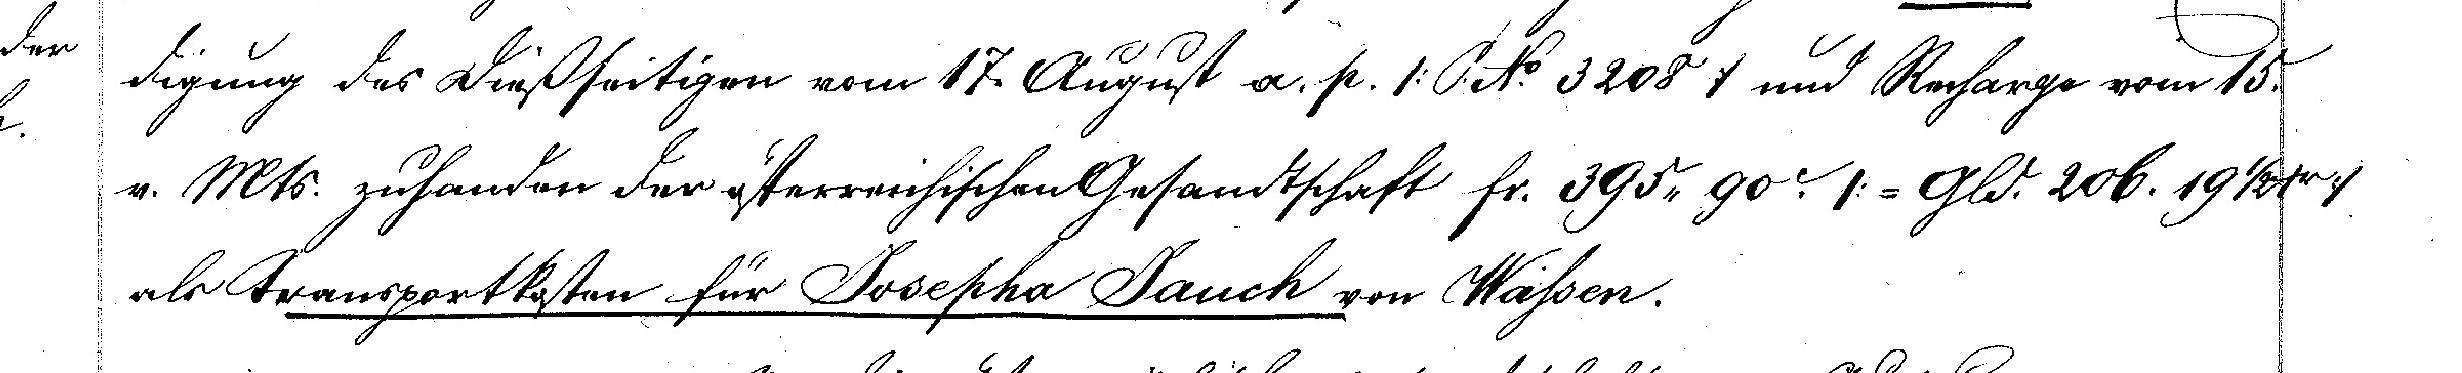 der
digung des Dießseitigen vom 17. August a. p. /: P. No 3208 :/ und Recharge vom 15.
v. Mts. zuhanden der österreichischen Gesandtschaft fr. 395„ 90 c. /: = Gld. 206. 19 1/2 kr :/
als Transportkosten für Josepha Jauch von Waßen.